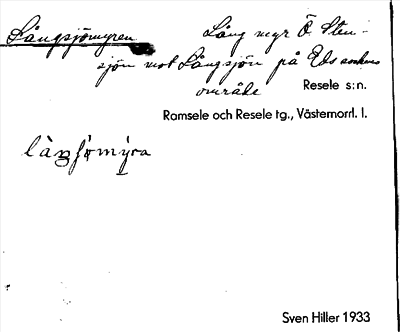 Långsjömyren Lång myr Ö. Sten-
sjön mot Långsjön på Eds sockens
område
Resele s:n.
Ramsele och Resele tg., Västernorrl. l.
Sven Hiller 1933